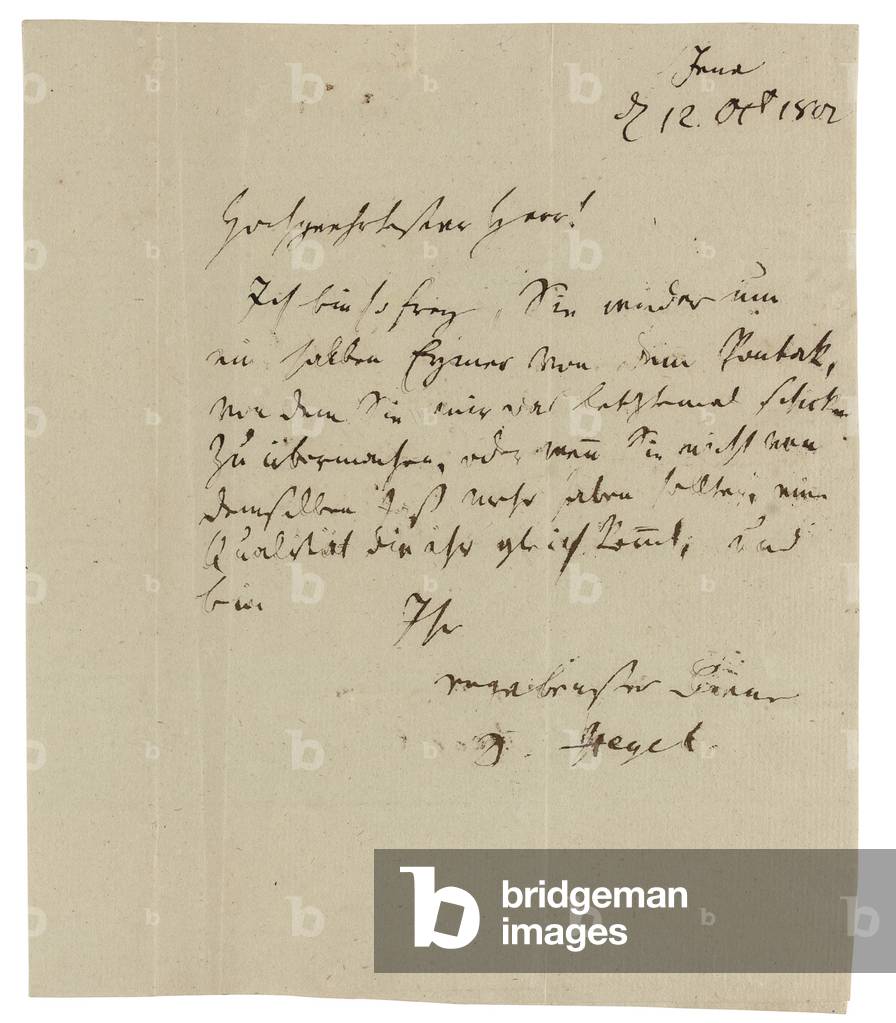 Jena
d 12. Oct 1802
Hochgeehrtester Herr!
Ich bin so frey, Sie wieder um
ein halben Eymer von dem Pontak,
von dem Sie mir das letztemal schickten
zu übermachen, oder weñ Sie nicht von
demselben Faß mehr haben sollten, eine
Qualität die ihr gleich kom̄t, und
bin
Ihr
ergebenster Diener
D. Hegel
bridgeman
images